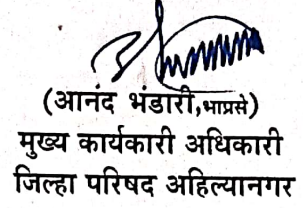 (आनंद भंडारी,भाप्रसे)
मुख्य कार्यकारी अधिकारी
जिल्हा परिषद अहिल्यानगर